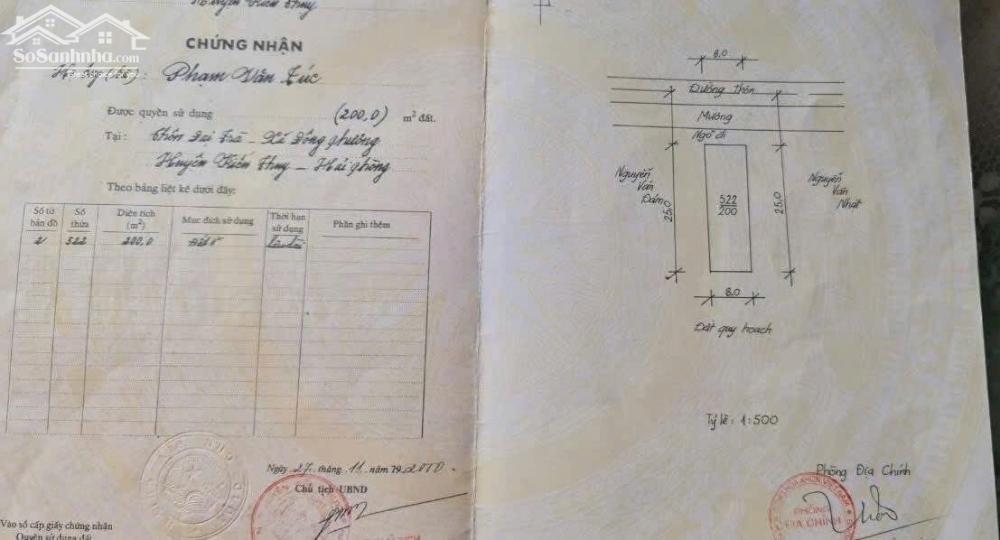 SoSanhnha.com
Huyện Kiến Thuỵ
CHỨNG NHẬN
Phạm Văn Túc
Được quyền sử dụng (200,0) m² đất.
Tại: Thôn Đại Trà - Xã Đông Phương
Huyện Kiến Thuỵ - Hải Phòng
Theo bảng liệt kê dưới đây:
Số tờ bản đồ
Số thửa
Diện tích (m²)
Mục đích sử dụng
Thời hạn sử dụng
Phần ghi thêm
2 522 200,0 Đất ở Lâu dài
Ngày 27 tháng 11 năm 2000
Chủ tịch UBND
Vào sổ cấp giấy chứng nhận
Quyền sử dụng đất
8,0
Đường thôn
Mương
Ngõ đi
Nguyễn Văn Đám
25,0
522
200
25,0
Nguyễn Văn Nhật
8,0
Đất quy hoạch
Tỷ lệ: 1:500
Phòng Địa Chính
PHÒNG
ĐỊA CHÍNH